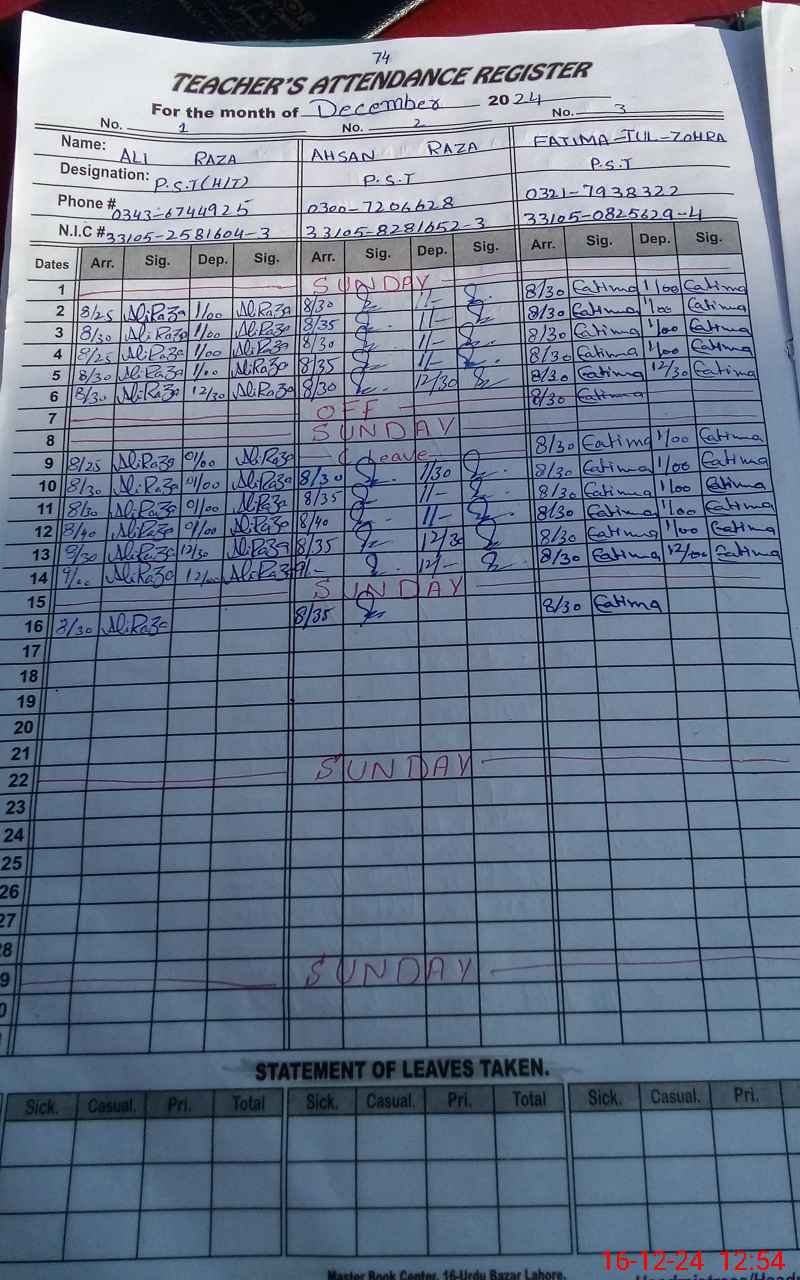 74
TEACHER'S ATTENDANCE REGISTER
For the month of December 2024
No. 1 No. 2 No. 3
Name: ALI RAZA AHSAN RAZA FATIMA-TUL-ZOHRA
Designation: P.S.T(H/T) P.S.T P.S.T
Phone # 0343-6744925 0300-7206628 0321-7938322
N.I.C # 33105-2581604-3 33105-8281652-3 33105-0825629-4
Dates Arr. Sig. Dep. Sig. Arr. Sig. Dep. Sig. Arr. Sig. Dep. Sig.
1 SUNDAY
2 8/25 AliRaza 1/00 AliRaza 8/30 1/- 8/30 Fatima 1/00 Fatima
3 8/30 AliRaza 1/00 AliRaza 8/35 1/- 8/30 Fatima 1/00 Fatima
4 8/25 AliRaza 1/00 AliRaza 8/30 1/- 8/30 Fatima 1/00 Fatima
5 8/30 AliRaza 1/00 AliRaza 8/35 1/- 8/30 Fatima 1/00 Fatima
6 8/30 AliRaza 12/30 AliRaza 8/30 12/30 8/30 Fatima 12/30 Fatima
7 OFF 8/30 Fatima
8 SUNDAY
9 8/25 AliRaza 01/00 AliRaza C Leave 8/30 Fatima 1/00 Fatima
10 8/30 AliRaza 01/00 AliRaza 8/30 1/30 8/30 Fatima 1/00 Fatima
11 8/30 AliRaza 01/00 AliRaza 8/35 1/- 8/30 Fatima 1/00 Fatima
12 8/40 AliRaza 01/00 AliRaza 8/40 1/- 8/30 Fatima 1/00 Fatima
13 8/30 AliRaza 12/30 AliRaza 8/35 12/30 8/30 Fatima 1/00 Fatima
14 9/00 AliRaza 12/00 AliRaza 9/- 12/- 8/30 Fatima 12/00 Fatima
15 SUNDAY
16 8/30 AliRaza 8/35 8/30 Fatima
17
18
19
20
21
22 SUNDAY
23
24
25
26
27
28
9 SUNDAY
0
STATEMENT OF LEAVES TAKEN.
Sick. Casual. Pri. Total Sick. Casual. Pri. Total Sick. Casual. Pri.
Master Book Center, 16-Urdu Bazar Lahore.
16-12-24 12:54